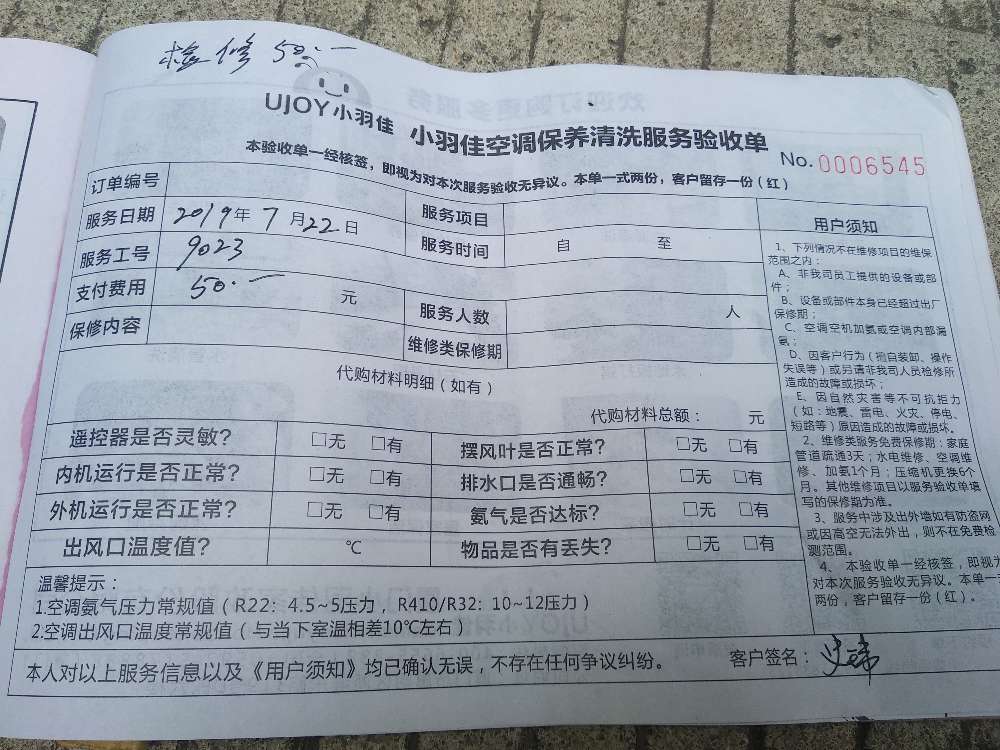 检修 50.一
UJOY小羽佳 小羽佳空调保养清洗服务验收单
No.0006545
本验收单一经核签，即视为对本次服务验收无异议。本单一式两份，客户留存一份（红）
订单编号
服务日期 2019年7月22日 服务项目
服务工号 9023 服务时间 自 至
支付费用 50.一 元 服务人数 人
保修内容 维修类保修期
代购材料明细（如有）
代购材料总额： 元
遥控器是否灵敏？ □无 □有 摆风叶是否正常？ □无 □有
内机运行是否正常？ □无 □有 排水口是否通畅？ □无 □有
外机运行是否正常？ □无 □有 氨气是否达标？ □无 □有
出风口温度值？ ℃ 物品是否有丢失？ □无 □有
温馨提示：
1.空调氨气压力常规值（R22：4.5~5压力，R410/R32：10~12压力）
2.空调出风口温度常规值（与当下室温相差10℃左右）
本人对以上服务信息以及《用户须知》均已确认无误，不存在任何争议纠纷。 客户签名：
用户须知
1、下列情况不在维修项目的维保
范围之内：
A、非我司员工提供的设备或部
件；
B、设备或部件本身已经超过出厂
保修期；
C、空调空机加氨或空调内部漏
氨；
D、因客户行为（擅自装卸、操作
失误等）或另请非我司人员检修所
造成的故障或损坏；
E、因自然灾害等不可抗拒力
（如：地震、雷电、火灾、停电、
短路等）原因造成的故障或损坏。
2、维修类服务免费保修期：家庭
管道疏通3天；水电维修、空调维
修、加氨1个月；压缩机更换6个
月。其他维修项目以服务验收单填
写的保修期为准。
3、服务中涉及出外墙如有防盗网
或因高空无法外出，则不在免费检
测范围。
4、本验收单一经核签，即视为
对本次服务验收无异议。本单一式
两份，客户留存一份（红）。